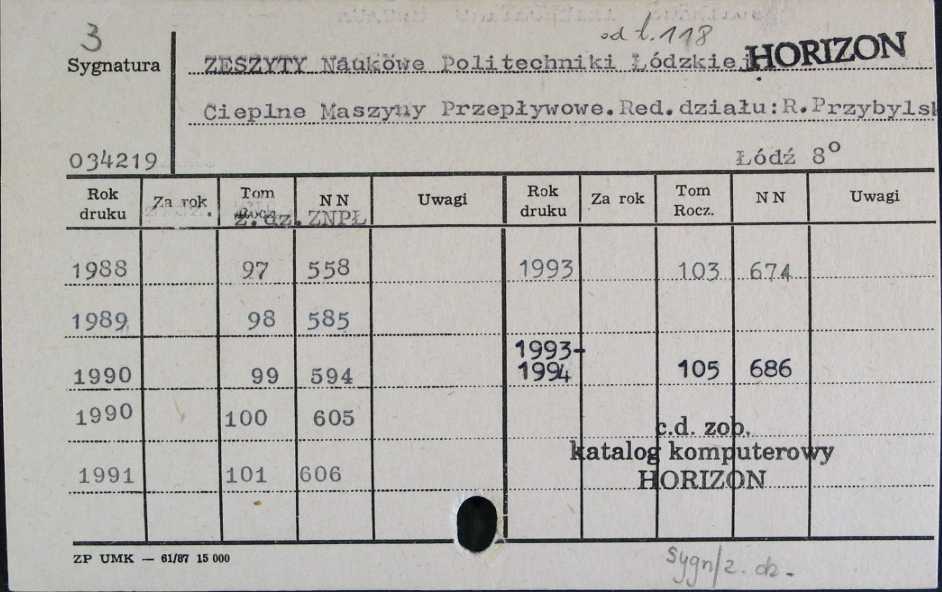 3
od t. 118
HORIZON
Sygnatura ZESZYTY Naukowe Politechniki Łódzkiej.
Cieplne Maszyny Przepływowe.Red.działu:R.Przybylsk
034219 Łódź 8°
Rok druku Za rok Tom Rocz. N N Uwagi Rok druku Za rok Tom Rocz. N N Uwagi
z.dz. ZNPŁ
1988 97 558 1993 103 674
1989 98 585
1990 99 594 1993-1994 105 686
1990 100 605
1991 101 606
c.d. zob.
katalog komputerowy
HORIZON
ZP UMK — 61/87 15 000
sygn/z. dz.